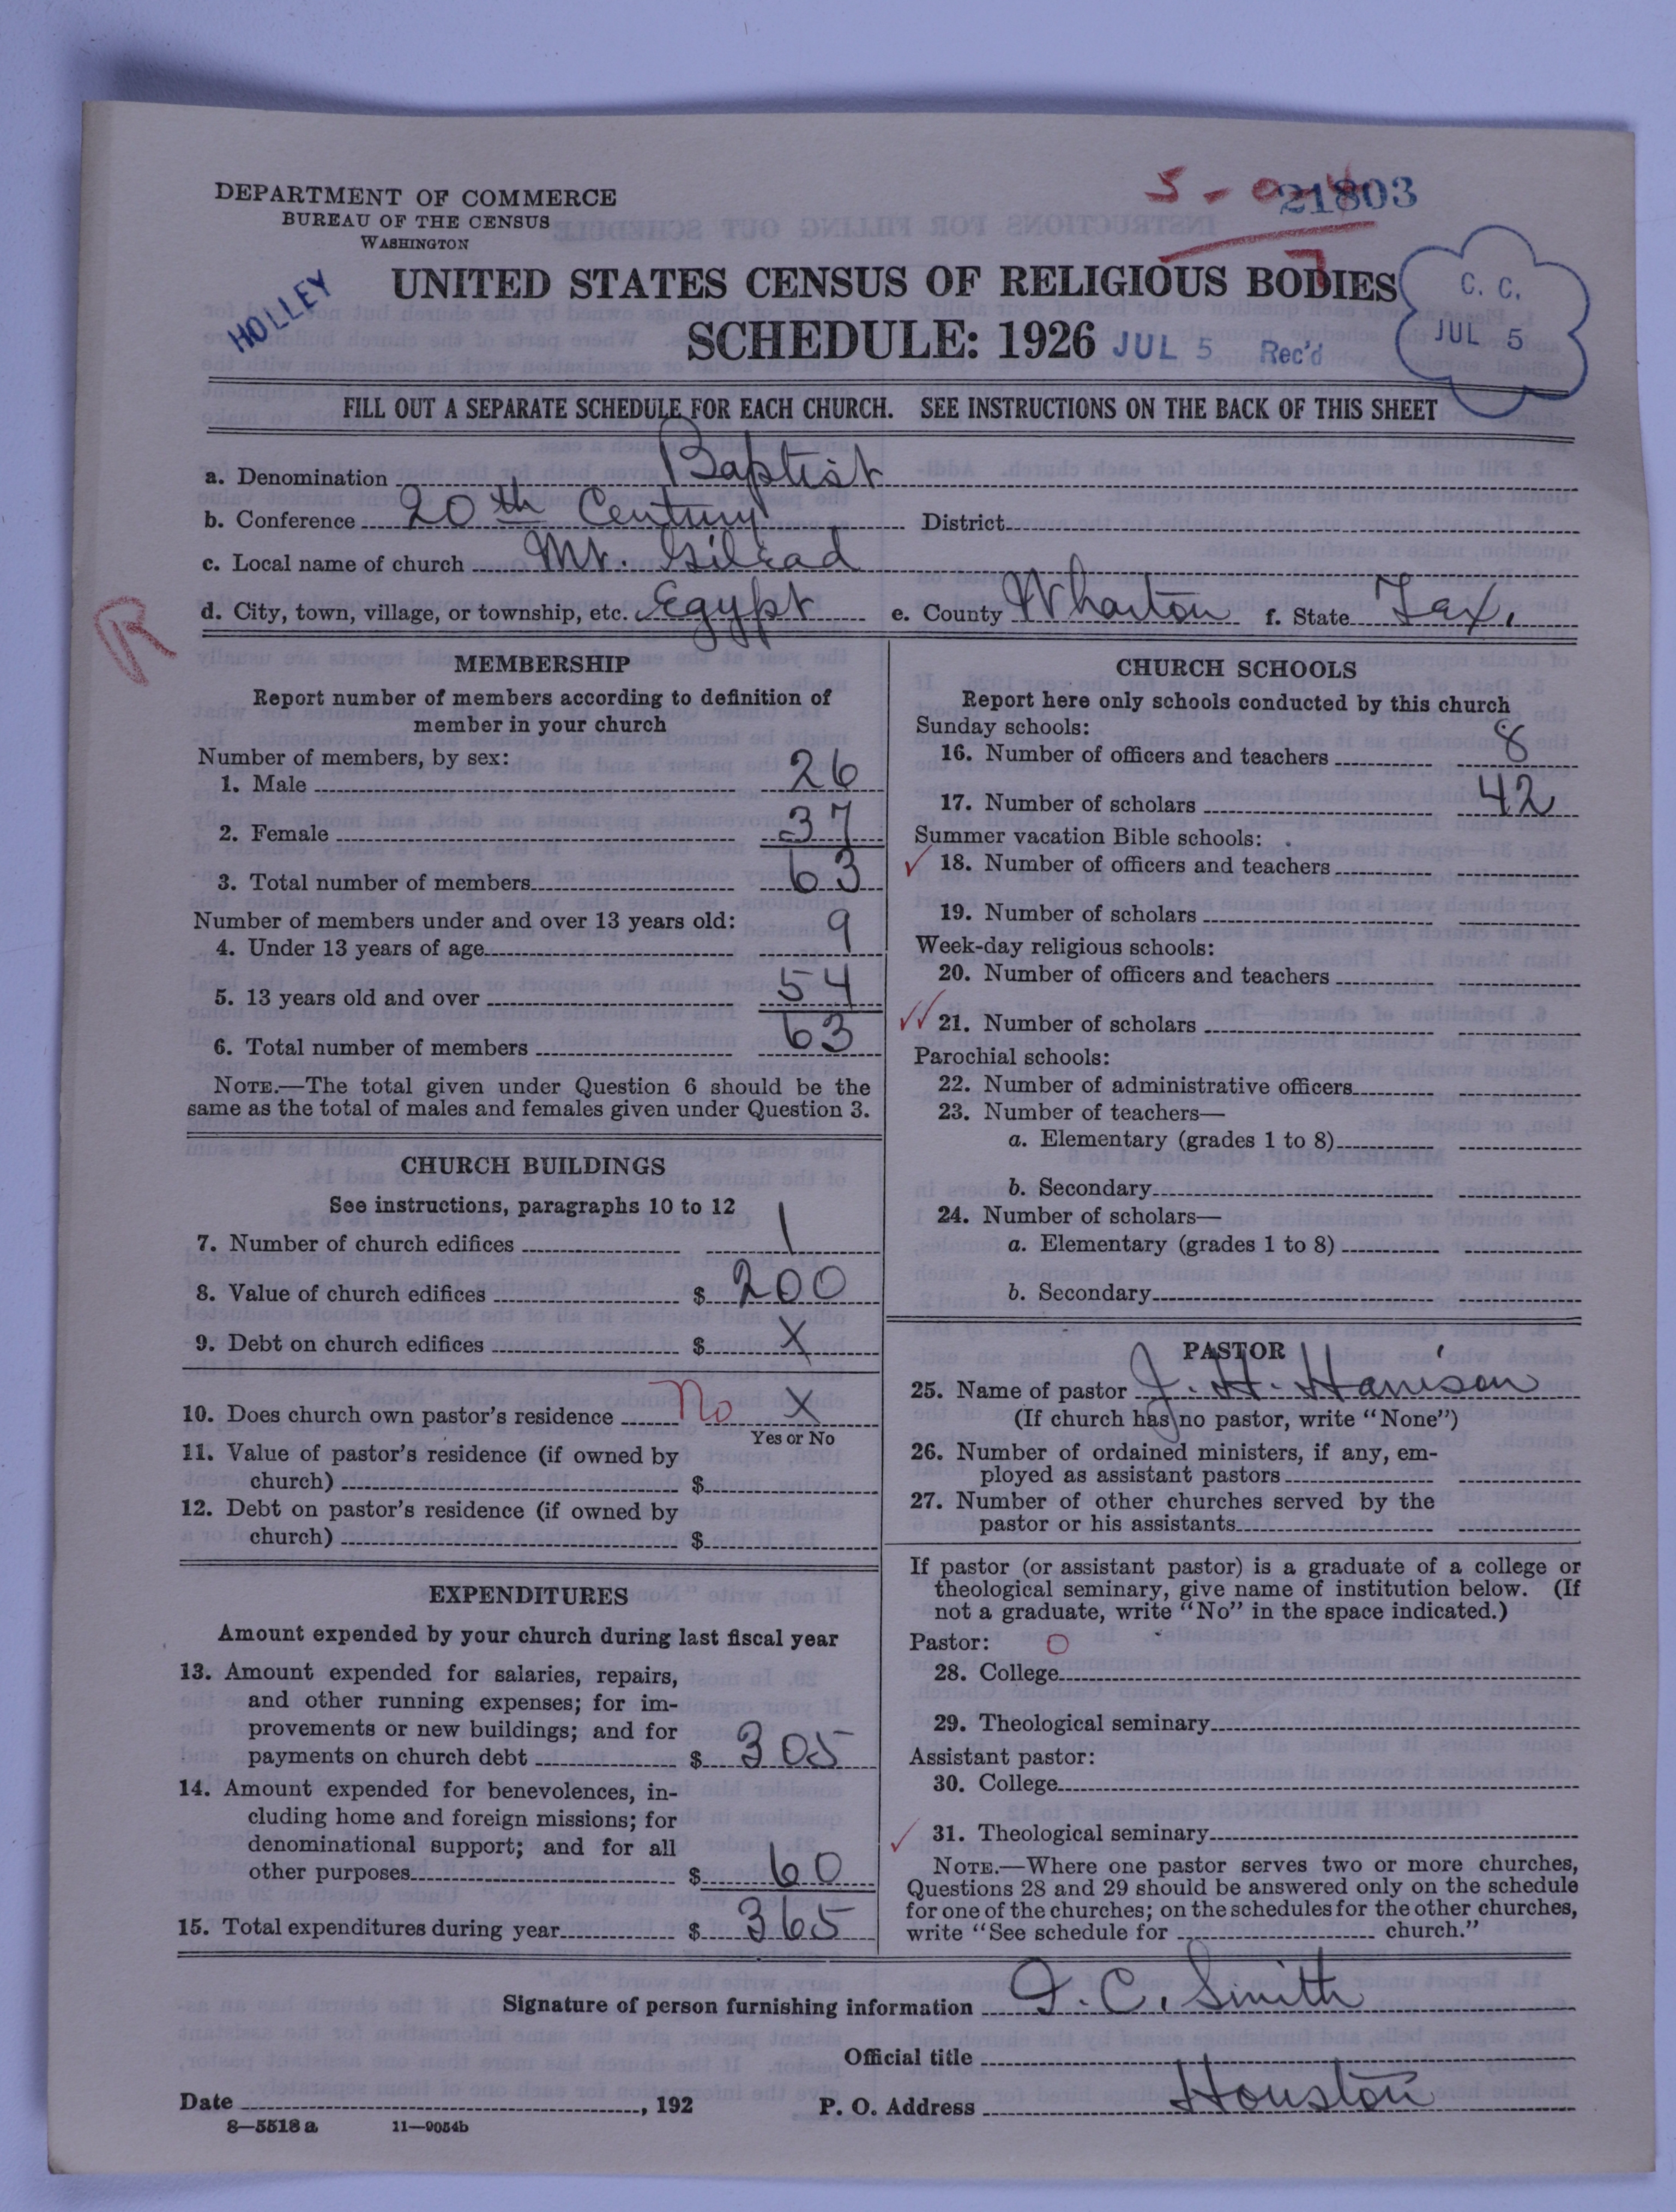 DEPARTMENT OF COMMERCE
BUREAU OF THE CENSUS
WASHINGTON
21803
HOLLEY
UNITED STATES CENSUS OF RELIGIOUS BODIES
SCHEDULE: 1926
JUL 5 Rec'd
C. C.
JUL 5
FILL OUT A SEPARATE SCHEDULE FOR EACH CHURCH. SEE INSTRUCTIONS ON THE BACK OF THIS SHEET
a. Denomination Baptist
b. Conference 20th Century District
c. Local name of church Mt. Gilead
d. City, town, village, or township, etc. Egypt e. County Wharton f. State Tex.
R
MEMBERSHIP
Report number of members according to definition of
member in your church
Number of members, by sex:
1. Male 26
2. Female 37
3. Total number of members 63
Number of members under and over 13 years old:
4. Under 13 years of age 9
5. 13 years old and over 54
6. Total number of members 63
NOTE.—The total given under Question 6 should be the
same as the total of males and females given under Question 3.
CHURCH BUILDINGS
See instructions, paragraphs 10 to 12
7. Number of church edifices 1
8. Value of church edifices $ 200
9. Debt on church edifices $ X
10. Does church own pastor's residence No X
Yes or No
11. Value of pastor's residence (if owned by
church) $
12. Debt on pastor's residence (if owned by
church) $
EXPENDITURES
Amount expended by your church during last fiscal year
13. Amount expended for salaries, repairs,
and other running expenses; for im-
provements or new buildings; and for
payments on church debt $ 305
14. Amount expended for benevolences, in-
cluding home and foreign missions; for
denominational support; and for all
other purposes $ 60
15. Total expenditures during year $ 365
CHURCH SCHOOLS
Report here only schools conducted by this church
Sunday schools:
16. Number of officers and teachers 8
17. Number of scholars 42
Summer vacation Bible schools:
18. Number of officers and teachers
19. Number of scholars
Week-day religious schools:
20. Number of officers and teachers
21. Number of scholars
Parochial schools:
22. Number of administrative officers
23. Number of teachers—
a. Elementary (grades 1 to 8)
b. Secondary
24. Number of scholars—
a. Elementary (grades 1 to 8)
b. Secondary
PASTOR
25. Name of pastor J. H. Harrison
(If church has no pastor, write "None")
26. Number of ordained ministers, if any, em-
ployed as assistant pastors
27. Number of other churches served by the
pastor or his assistants
If pastor (or assistant pastor) is a graduate of a college or
theological seminary, give name of institution below. (If
not a graduate, write "No" in the space indicated.)
Pastor: O
28. College
29. Theological seminary
Assistant pastor:
30. College
31. Theological seminary
NOTE.—Where one pastor serves two or more churches,
Questions 28 and 29 should be answered only on the schedule
for one of the churches; on the schedules for the other churches,
write "See schedule for church."
Signature of person furnishing information J. C. Smith
Official title
Date , 192 P. O. Address Houston
8—5518 a 11—9054b